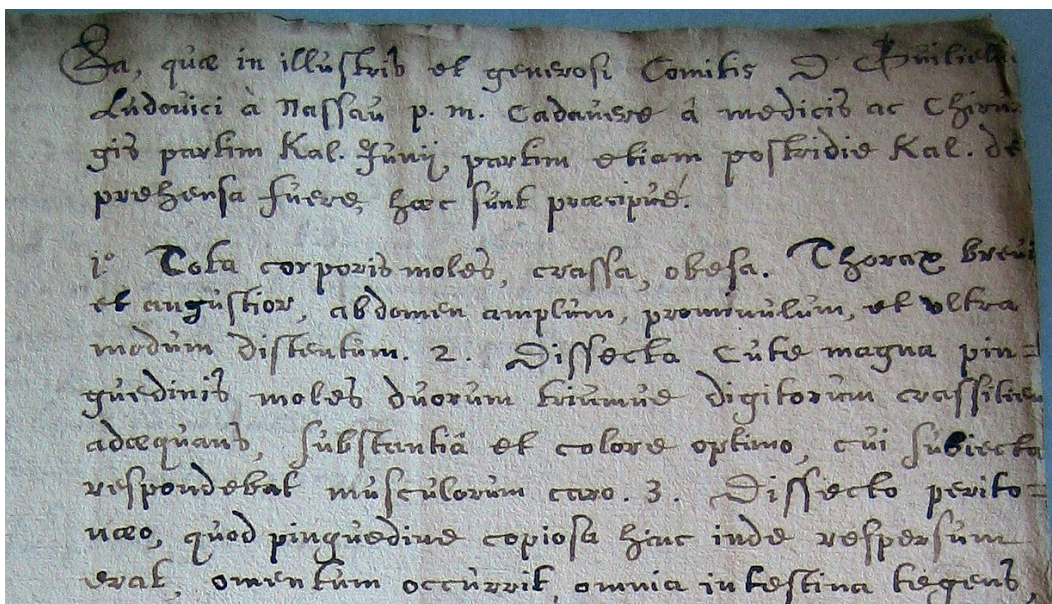 Ea, quæ in illustris et generosi Comitis D. Guilielm
Ludovici à Nassau p. m. Cadavere à medicis ac Chirur
gis partim Kal. Junij, partim etiam postridie Kal. de
prehensa fuere, hæc sunt præcipuè.
1º Tota corporis moles, crassa, obesa. Thorax brevi
et angustior, abdomen amplum, prominulum, et ultra
modum distentum. 2. Dissecta Cute magna pin=
guedinis moles duorum triumve digitorum crassitiem
adæquans, substantiâ et colore optimo, cui subiecta
respondebat musculorum caro. 3. Dissecto perito=
næo, quod pinguedine copiosa hinc inde respersum
erat, omentum occurrit, omnia intestina tegens,